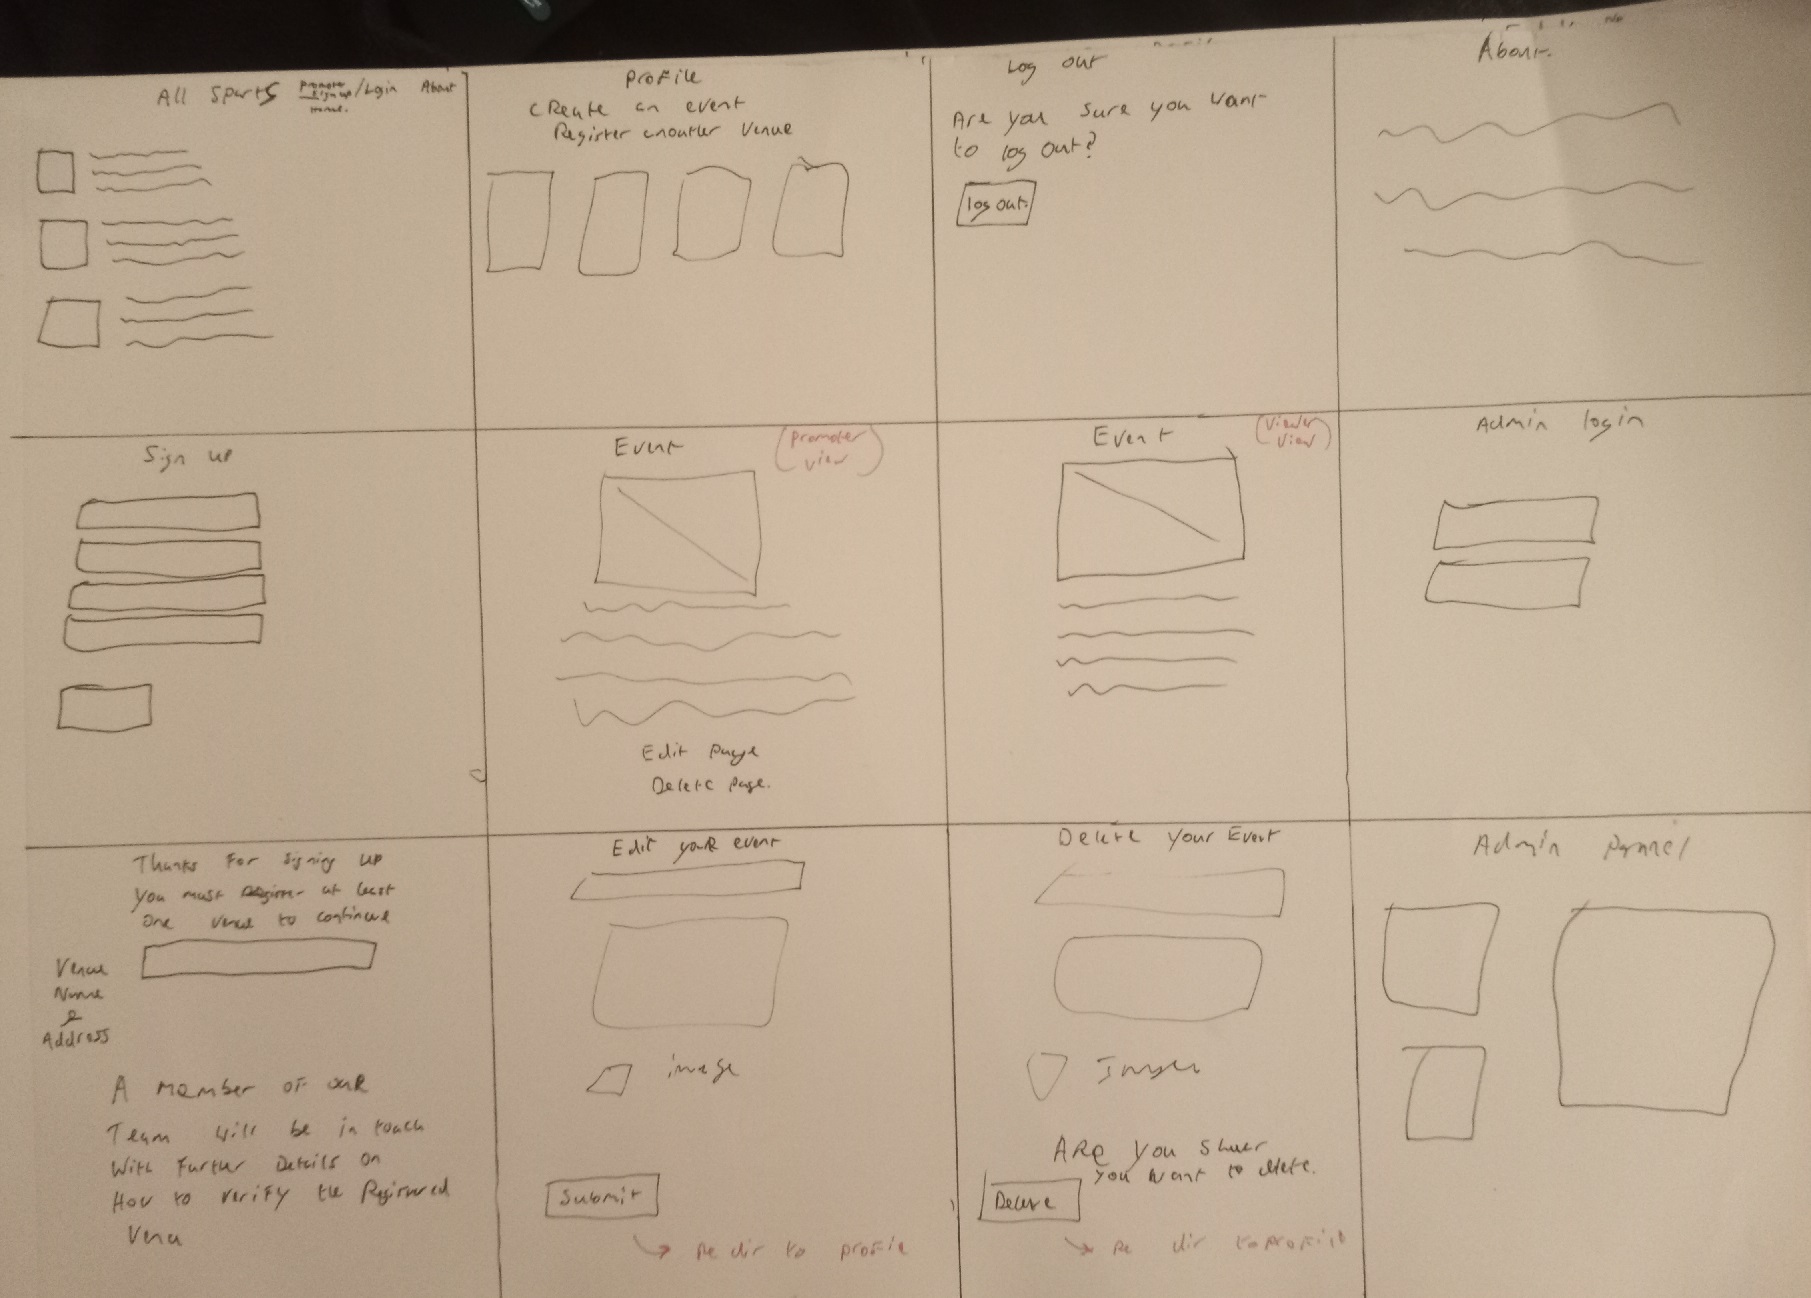 All Sports Promoter Sign up /Login About
Profile
Create an event
Register another Venue
Log out
Are you sure you want
to log out?
log out
About.
Sign up
Event
(Promoter
View)
Edit page
Delete page.
Event
(Viewer
View)
Admin login
Thanks for signing up
You must register at least
one venue to continue
Venue
Name
&
Address
A member of our
Team will be in touch
With Further Details on
How to verify the Registered
Venu
Edit your event
image
Submit
Re dir to profile
Delete your Event
Image
Are you shuer
you want to delete.
Delete
Re dir to profile
Admin Pannel